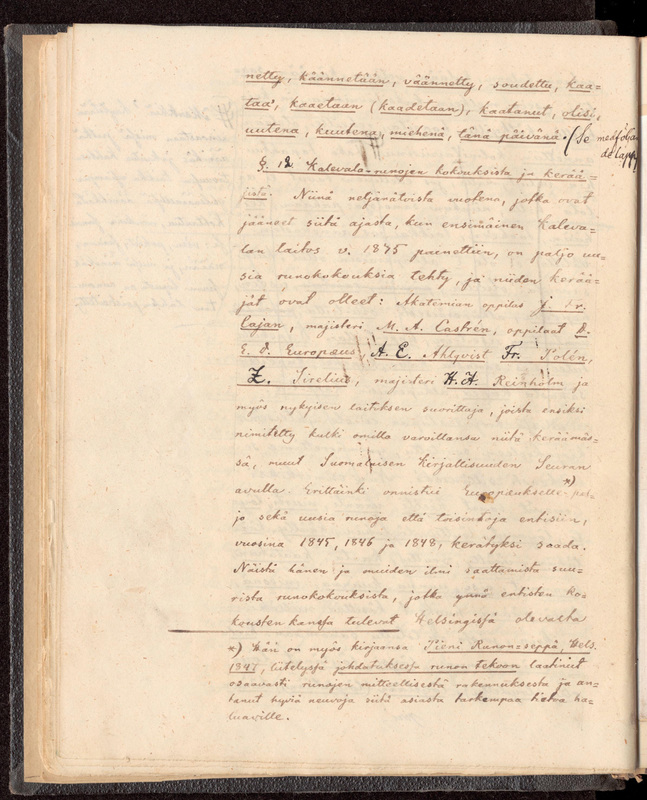 netty, käännetään, väännetty, soudettu, kaa=
taa', kaaetaan (kaadetaan), kaatanut, olisi,
uutena, kuutena, miehenä, tänä päivänä. (Se
§. 12 Kalevala-runojen kokouksista ja kerää=
jistä. Niinä neljänätoista vuotena, jotka ovat
jääneet siitä ajasta, kun ensimäinen Kaleva=
lan laitos v. 1835 painettiin, on paljo uu=
sia runokokouksia tehty, ja niiden kerää=
jät ovat olleet: Akatemian oppilas J. Fr.
Cajan, majisteri M. A. Castrén, oppilaat D.
E. D. Europæus, A. E. Ahlqvist Fr. Polén,
Z. Sirelius, majisteri H. A. Reinholm ja
myös nykyisen laituksen suorittaja, joista ensiksi
nimitetty kulki omilla varoillansa niitä keräämäs=
sä, muut Suomalaisen Kirjallisuuden Seuran
avulla. Erittäinki onnistui Europæukselle *) pal=
jo sekä uusia runoja että toisintoja entisiin,
vuosina 1845, 1846 ja 1848, kerätyksi saada.
Näistä hänen ja muiden ilmi saattamista suu=
rista runokokouksista, jotka ynnä entisten ko=
kousten kanssa tulevat Helsingissä olevalta
*) Hän on myös kirjaansa Pieni Runon=seppä, Hels.
1847, liitetyssä johdatuksessa runon tekoon laatinut
osaavasti runojen mitteellisestä rakennuksesta ja an=
tanut hyviä neuvoja siitä asiasta tarkempaa tietoa ha=
luaville.